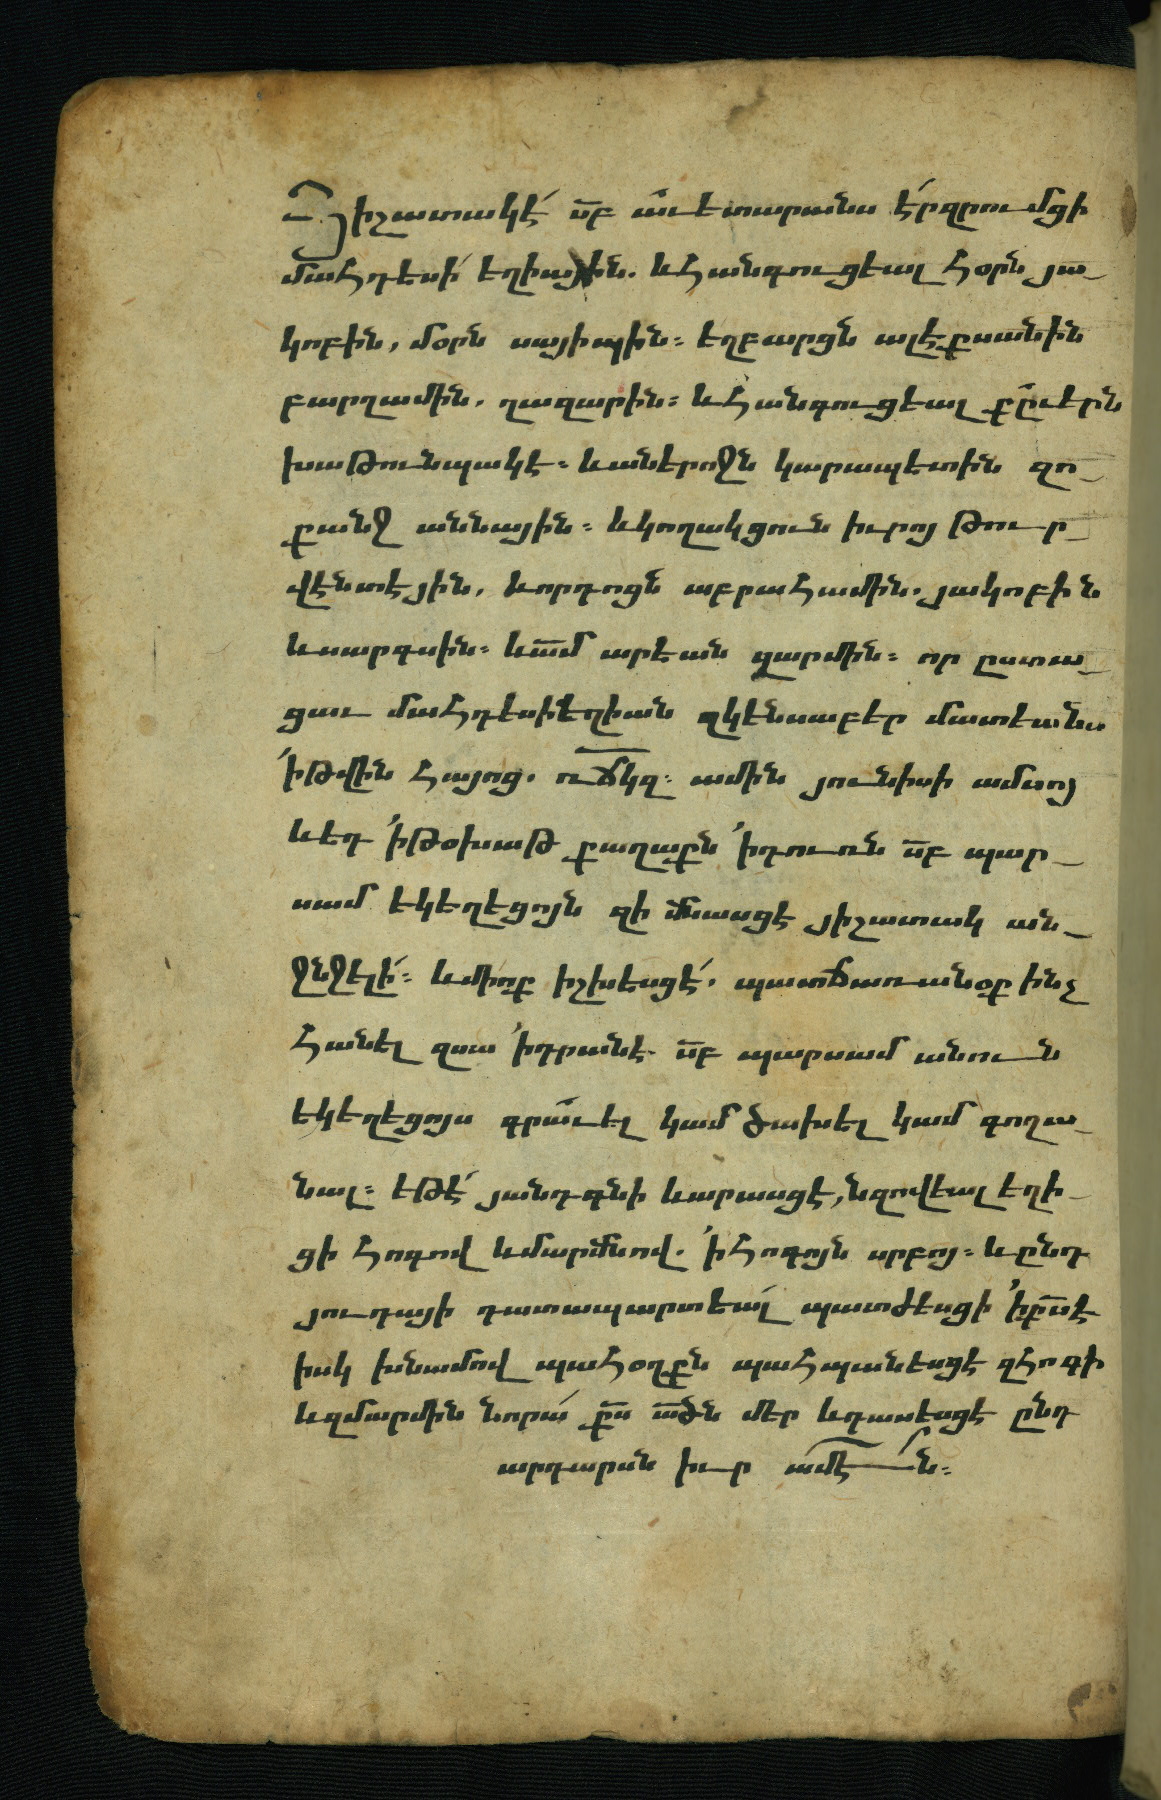 Յիշատակէ՛ սբ աւետարանս է՛րզրումցի
մահդեսի՛ եղիային. և հանգուցեալ հօրն յա_
կոբին, մօրն սայիպին։ եղբարցն ալէքսանին
բաղդամին. ղազարին։ և հանգուցեալ քվերն
խաթունպակէ։ և աներոջն կարապետին զո_
քանջ աննային։ և կողակցուն իւրոյ թուր_
վէնտէյին, և որդոցն աբրահամին. յակոբին
և սարգսին։ և ամ արեան զարմին։ որ ըստա_
ցաւ մահդեսի եղիան զկենսաբեր մատեանս
՚ի թվին հայոց. ռճկզ. ամին յունիսի ամսոյ
և եդ ՚ի թօխաթ քաղաքն ՚ի դուռն սբ պար_
սամ եկեղեցոյն զի մնասցէ յիշատակ ան_
ջնջելի՛։ և մի՛ոք իշխեսցէ՛. պատճառանօք ինչ
հանել զսա ՚ի դրանէ. սբ պարսամ անուն
եկեղեցոյս գրաւել կամ ծախել կամ գողա_
նալ։ եթէ՛ յանդգնի և արասցէ, նզովեալ եղի_
ցի հոգով և մարմնով. ՚ի հոգոյն սրբոյ։ և ընդ
յուդայի դատապարտեալ պատժեսցի ՚ի քսէ
իսկ խնամով պահօղքն պահպանեսցէ զհոգի
և զմարմին նորա՛ քս ած ն մեր և դասեսցէ ընդ
արդարսն իւր ամէն։